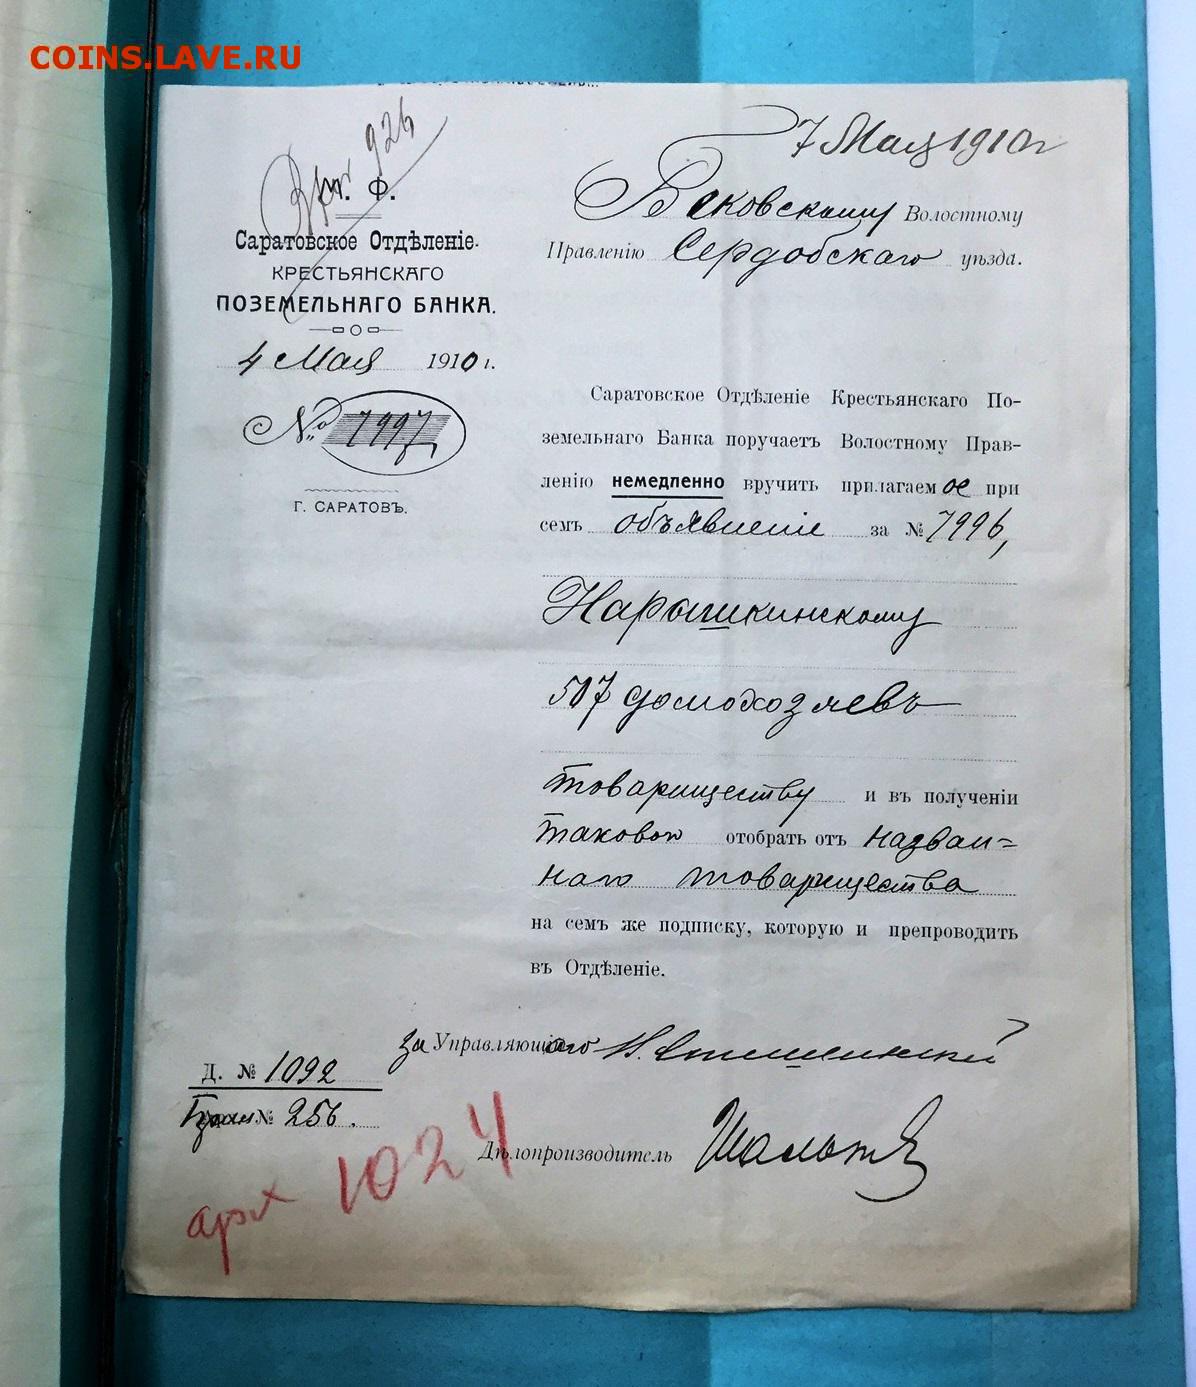 COINS.LAVE.RU
926
М. Ф.
Саратовское Отдѣленіе
КРЕСТЬЯНСКАГО
ПОЗЕМЕЛЬНАГО БАНКА.
4 Мая 1910 г.
№ 7997
Г. САРАТОВЪ.
7 Мая 1910 г
Бековскому Волостному
Правленію Сердобскаго уѣзда.
Саратовское Отдѣленіе Крестьянскаго По-
земельнаго Банка поручаетъ Волостному Прав-
ленію немедленно вручить прилагаемое при
семъ объявленіе за № 7996,
Нарышкинскому
507 домохозяевъ
товариществу и въ полученіи
таковой отобрать отъ назван=
наго товарищества
на семъ же подписку, которую и препроводить
въ Отдѣленіе.
За Управляющаго Н.
Д. № 1092
№ 256.
Дѣлопроизводитель
арх 1024